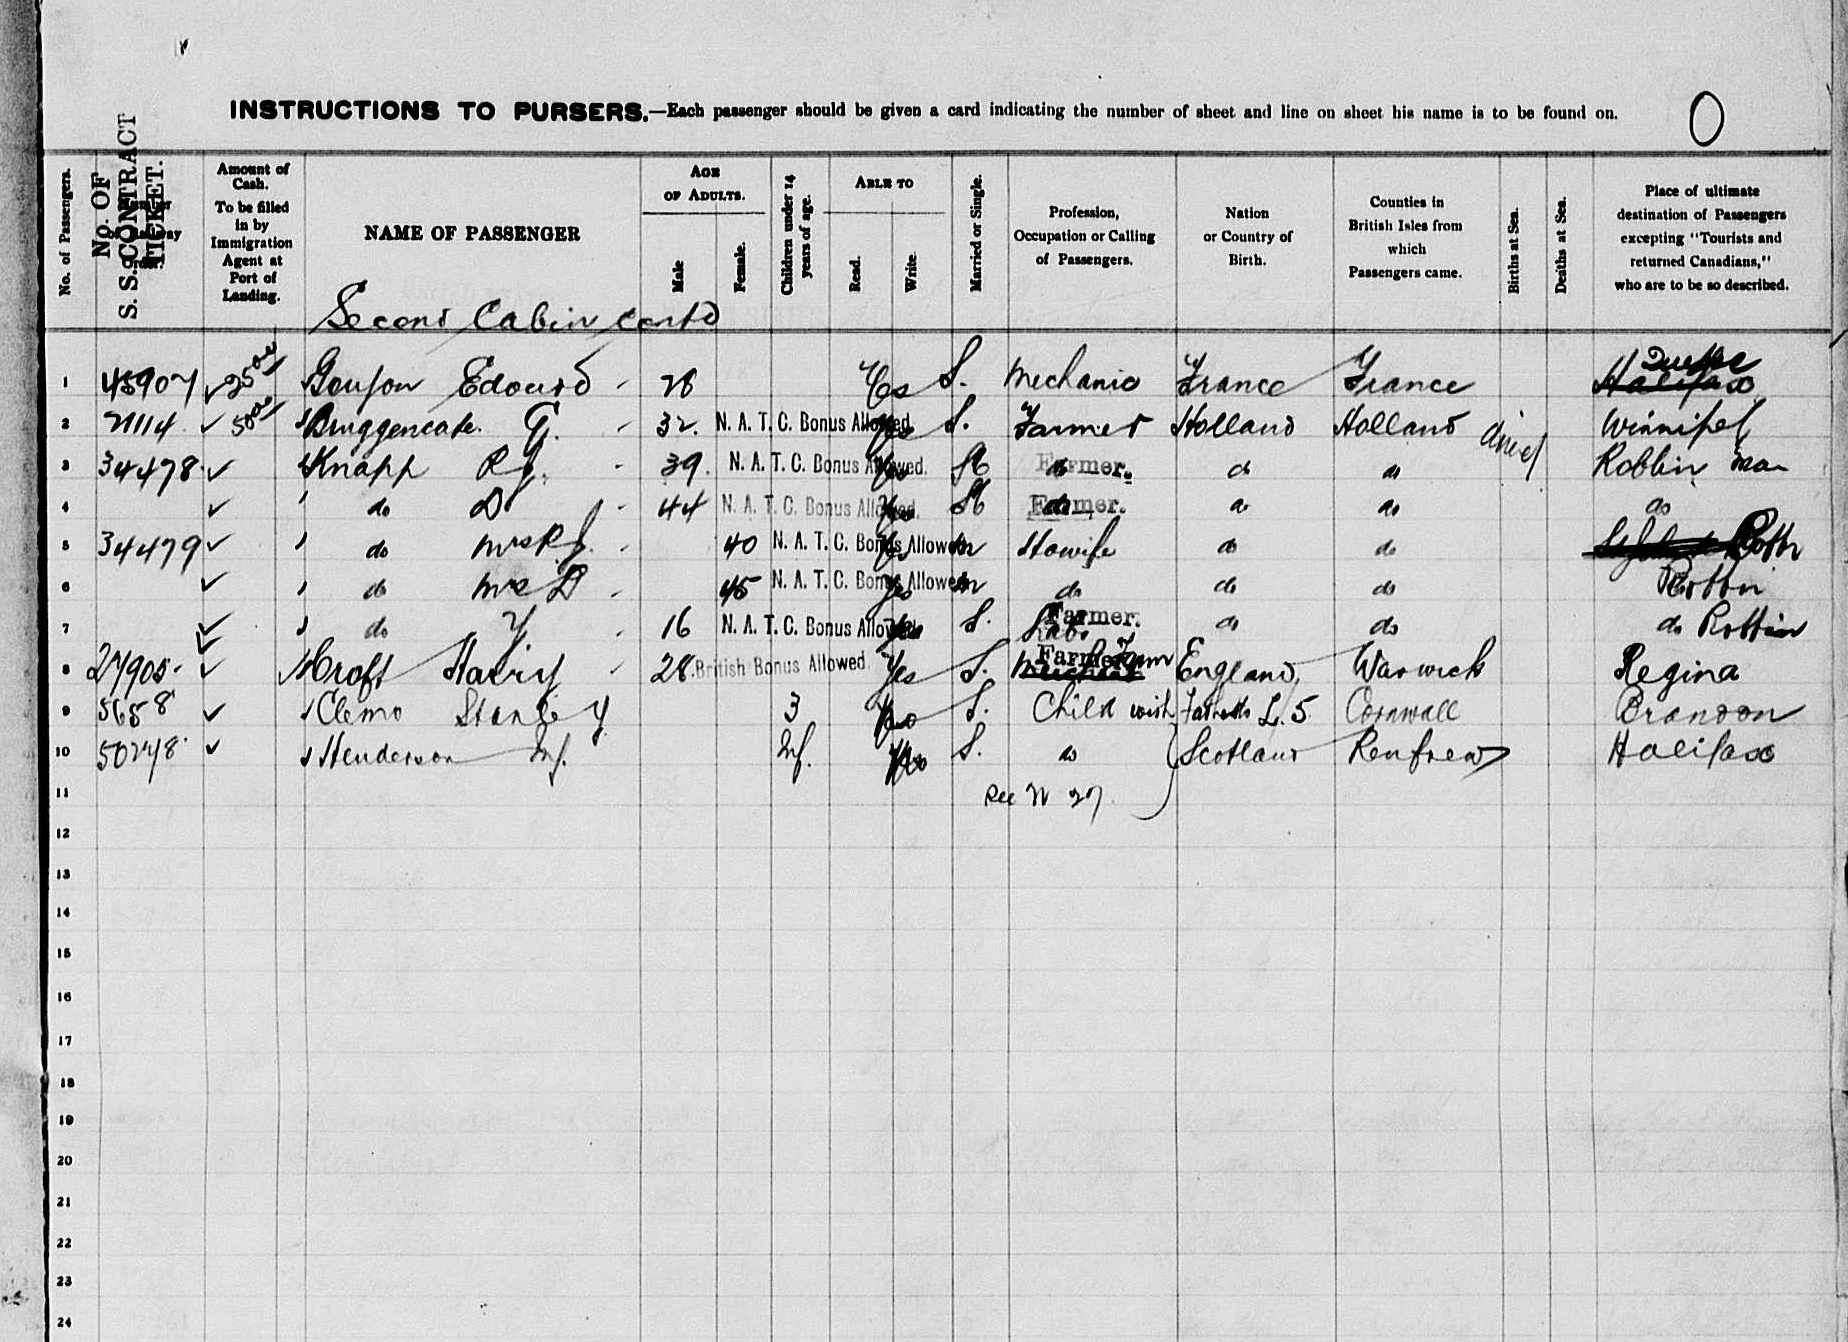 INSTRUCTIONS TO PURSERS.—Each passenger should be given a card indicating the number of sheet and line on sheet his name is to be found on. O
No. of Passengers. No. OF S. S. CONTRACT TICKET. Amount of Cash. To be filled in by Immigration Agent at Port of Landing. NAME OF PASSENGER AGE OF ADULTS. Male Female. Children under 14 years of age. ABLE TO Read. Write. Married or Single. Profession, Occupation or Calling of Passengers. Nation or Country of Birth. Counties in British Isles from which Passengers came. Births at Sea. Deaths at Sea. Place of ultimate destination of Passengers excepting "Tourists and returned Canadians," who are to be so described.
Second Cabin contd
1 45907 25 Goujon Edouard 28 Yes S. Mechanic France France Halifax
2 21114 50 Bruggencate. G. 32. N. A. T. C. Bonus Allowed. Yes S. Farmer Holland Holland direct Winnipeg
3 34478 Knapp RJ. 39. N. A. T. C. Bonus Allowed. M Farmer. do do Roblin Man
4 do D 44 N. A. T. C. Bonus Allowed. M do Farmer. do do do
5 34479 do Mrs RJ. 40 N. A. T. C. Bonus Allowed M Howife do do
6 do Mrs D 45 N. A. T. C. Bonus Allowed Yes M do do do
7 do Y 16 N. A. T. C. Bonus Allowed S. Lab. Farmer. do do do Roblin
8 27905 Croft Harry 28 British Bonus Allowed. Yes S. Farmer. England Warwick Regina
9 5658 Clemo Stanley 3 No S. Child with Father L. 5 Cornwall Brandon
10 50248 Henderson Inf. Inf. No S. do Scotland Renfrew Halifax
11 See 27
12
13
14
15
16
17
18
19
20
21
22
23
24